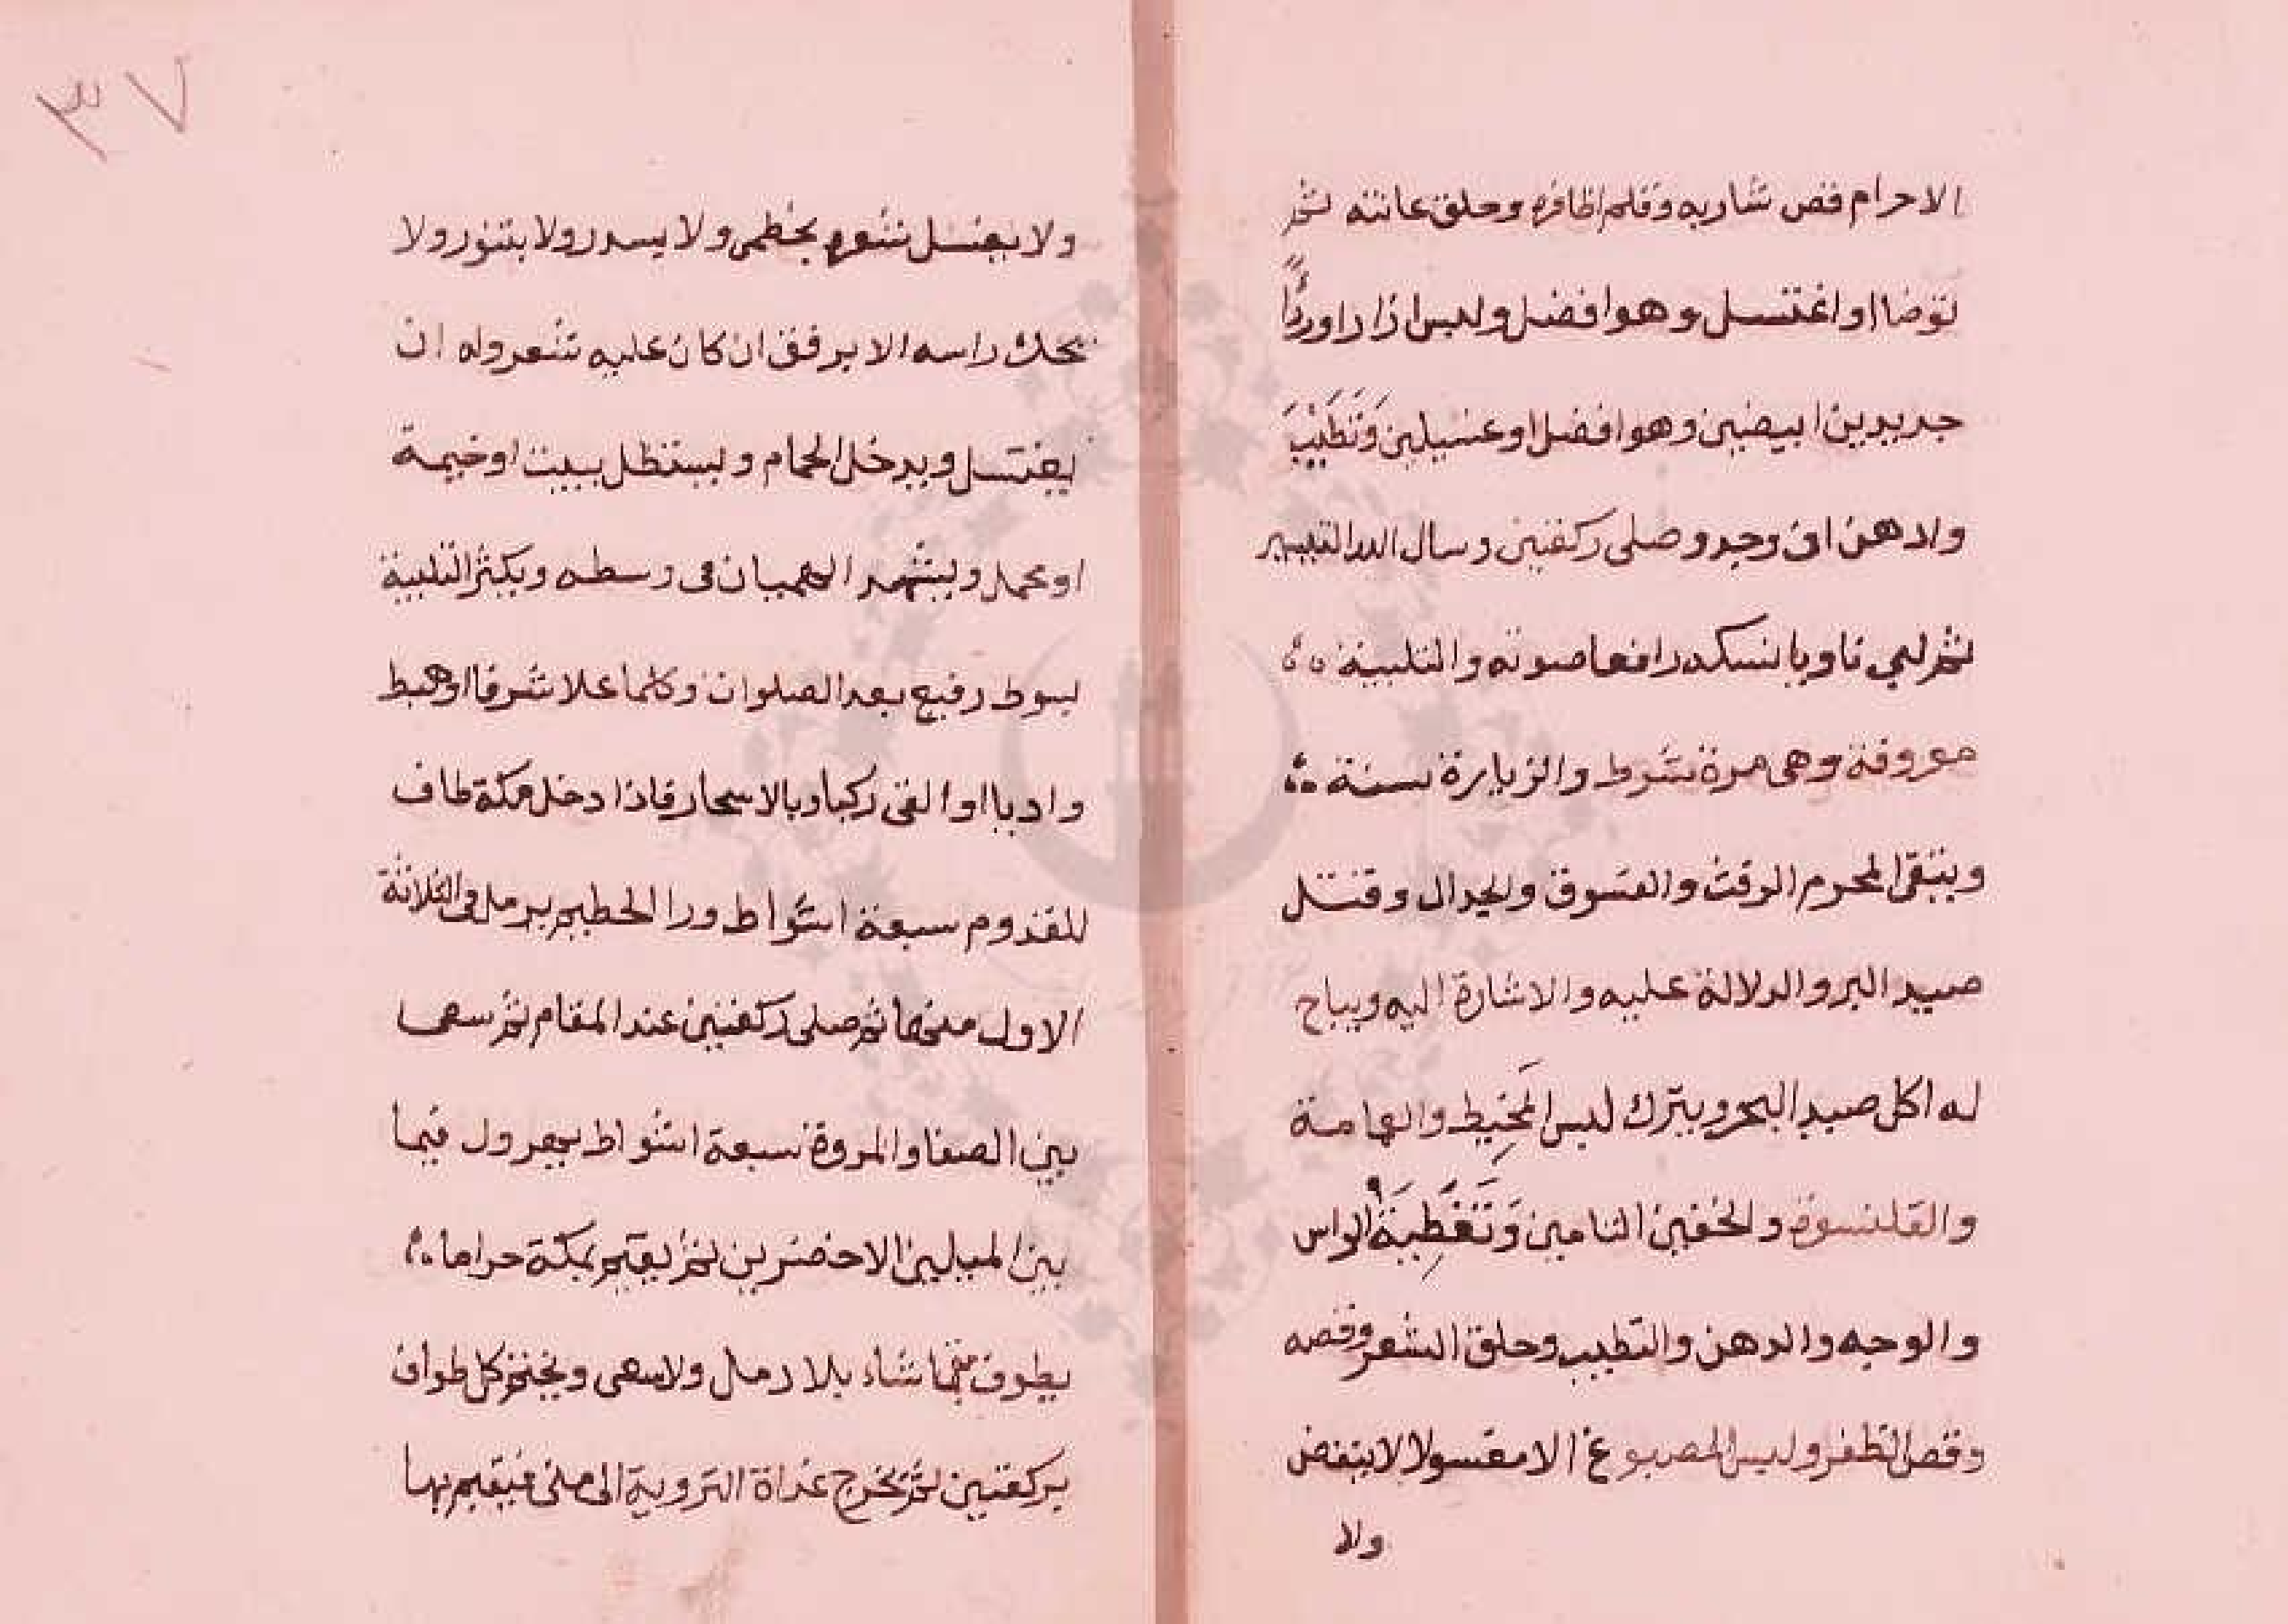 الاحرام قص شاربه وقلم اظافره وحلق عانته ثم
توضا او اغتسل وهو افضل ولبس ازارا ورداً
جديدين ابيضين وهو افضل او غسيلين وَتَطَيَّبَ
وادهن ان وجد وصلى ركعتين وسال الله التيسير
ثم لبي ناويا نسكه رافعا صوته والتلبية
معروفة وهي مرة شرط والزيارة سنة
ويتقى المحرم الرفث والفسوق والجدال وقتل
صيد البر والدلالة عليه والاشارة اليه ويباح
له اكل صيد البحر ويترك لبس المَخِيط والعمامة
والقلنسوة والخفين التامين وَتَغْطِيَةُ الراس
والوجه والدهن والتطيب وحلق الشعر وقصه
وقص الظفر ولبس المصبوغ الا مغسولا لا ينفض
ولا
٣٧
ولا يغسل شعره بخطمى ولا يسدر ولا يتنور ولا
يحك راسه الا برفق ان كان عليه شعر وله ان
يغتسل ويدخل الحمام ويستظل ببيت او خيمة
او محمل ويشد الهميان فى وسطه ويكثر التلبية
بصوط رفيع بعد الصلوات وكلما علا شرفا او هبط
واديا او القى ركبا وبالاسحار فاذا دخل مكة طاف
للقدوم سبعة اشواط ورا الحطيم يرمل فى الثلاثة
الاول منها ثم صلى ركعتين عند المقام ثم سعى
بين الصفا والمروة سبعة اشواط يهرول فيما
بين الميلين الاخضرين ثم يقيم بمكة حراما
يطوف مهما شاء بلا رمل ولا سعى ويختم كل طواف
بركعتين ثم يخرج غداة التروية الى منى فيقيم بها